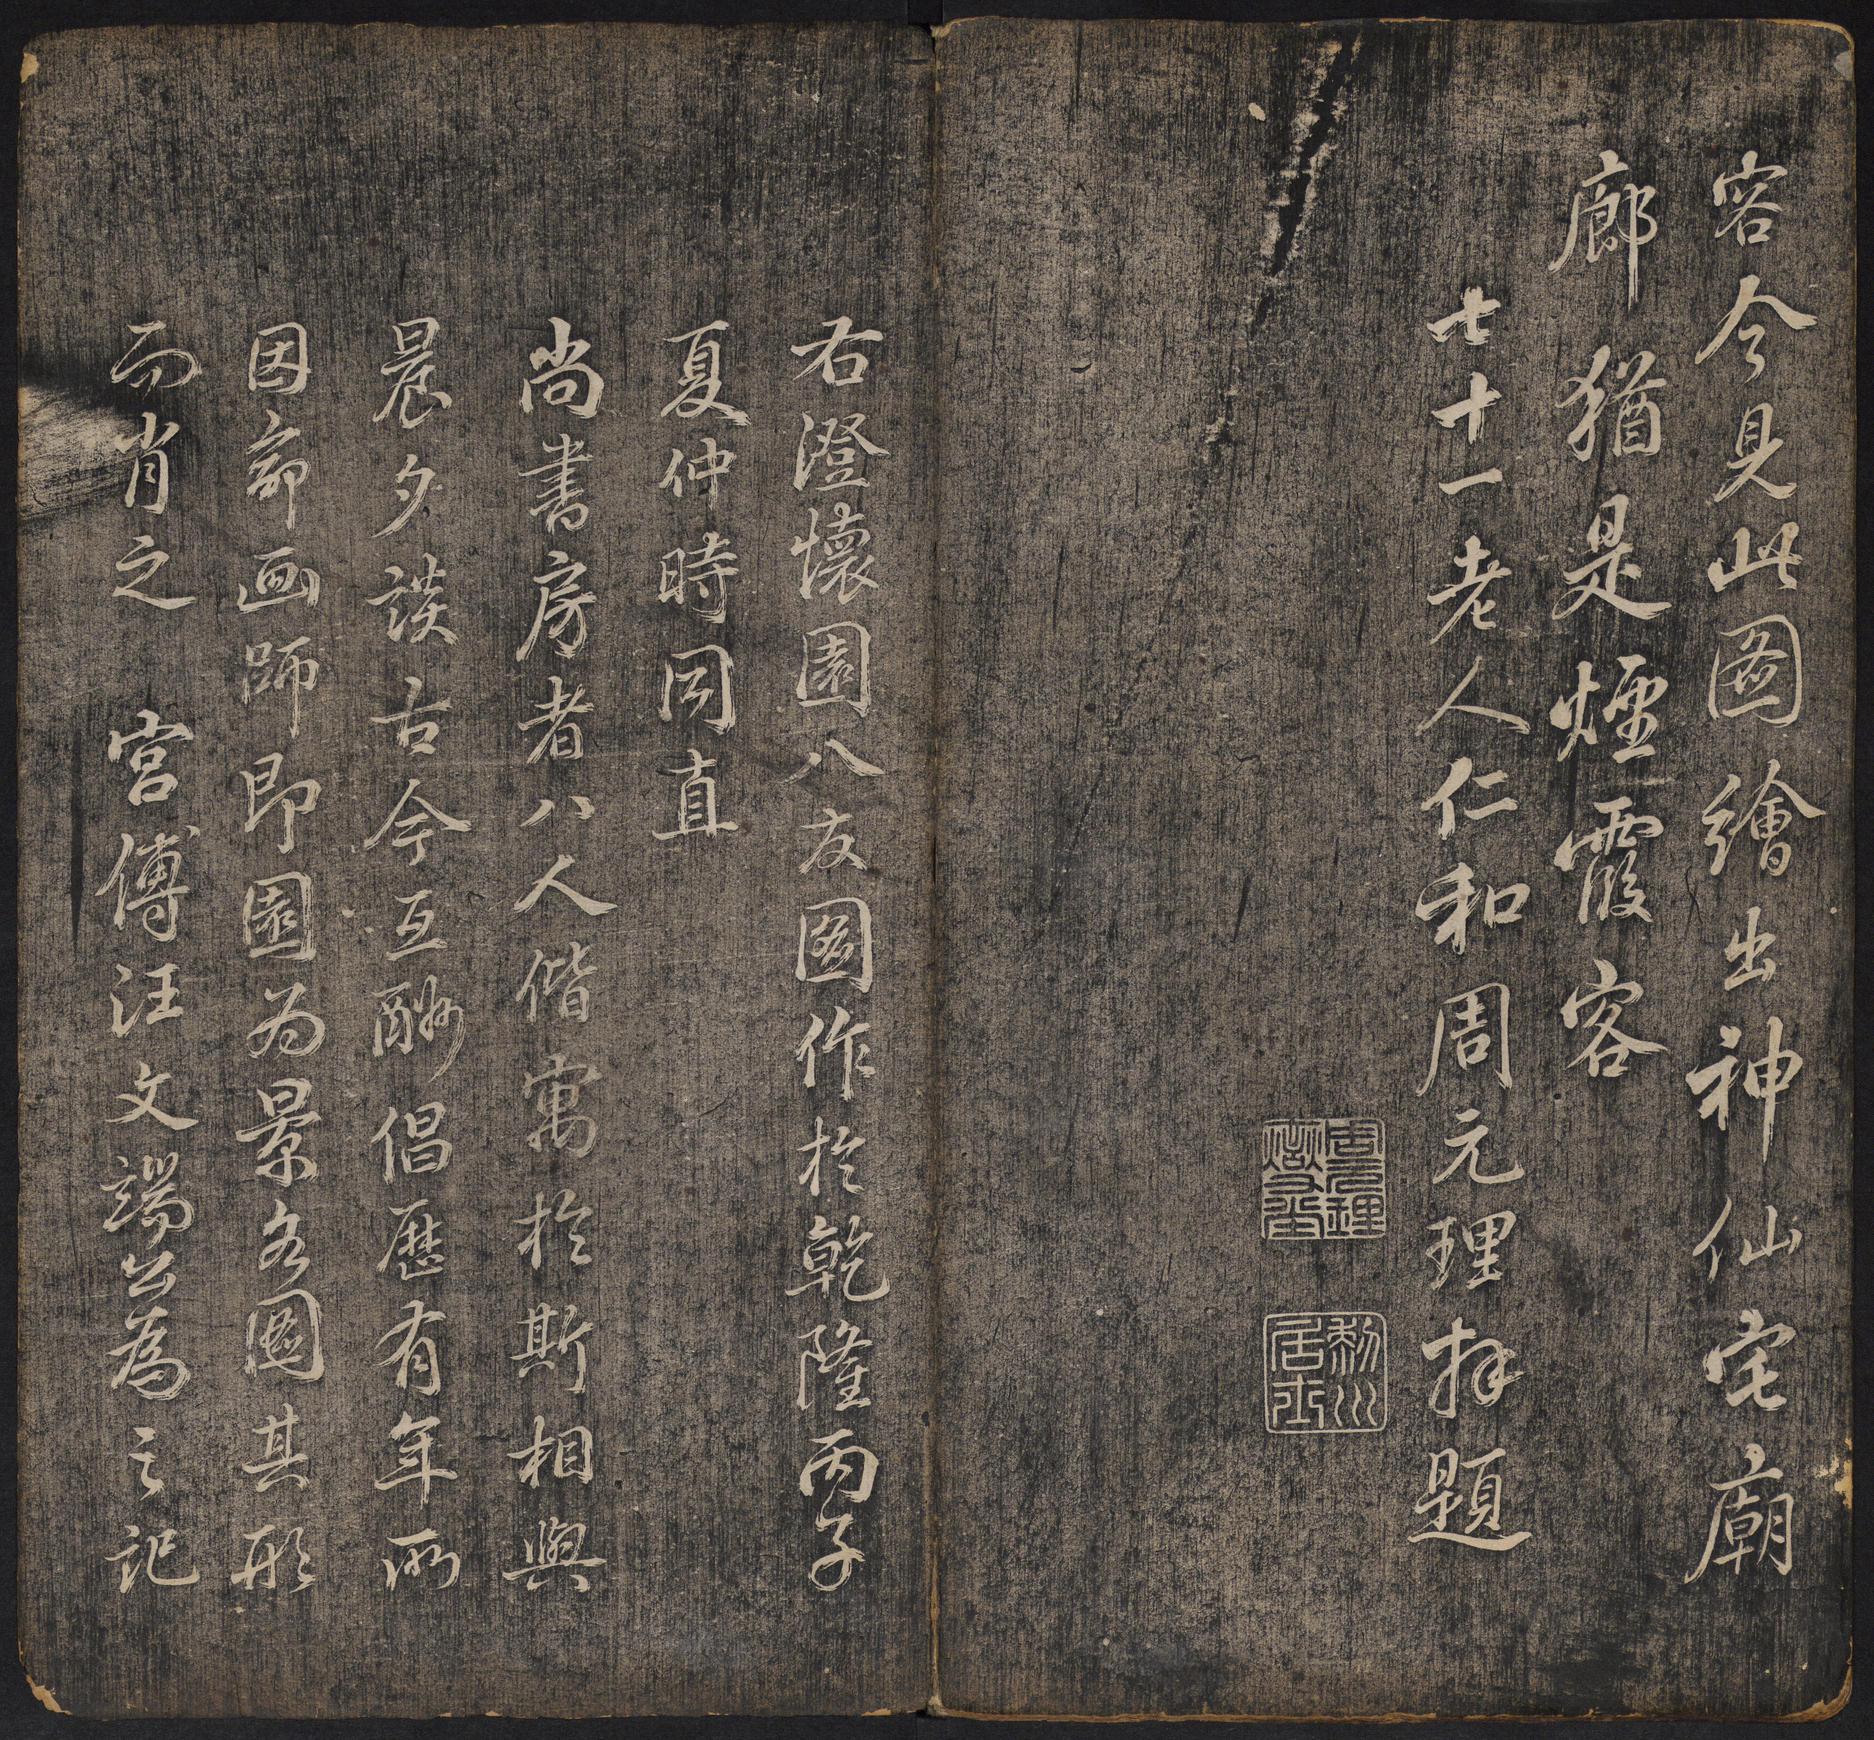 容今見此圖繪出神仙宅廟
廊猶是煙霞客
七十一老人仁和周元理拜題
周元理
黎川居士
右澄懷園八友圖作於乾隆丙子
夏仲時同直
尚書房者八人偕寓於斯相與
晨夕談古今互酬倡歷有年所
因命画師即園为景各圖其形
而肖之 宮傅汪文端公為之記